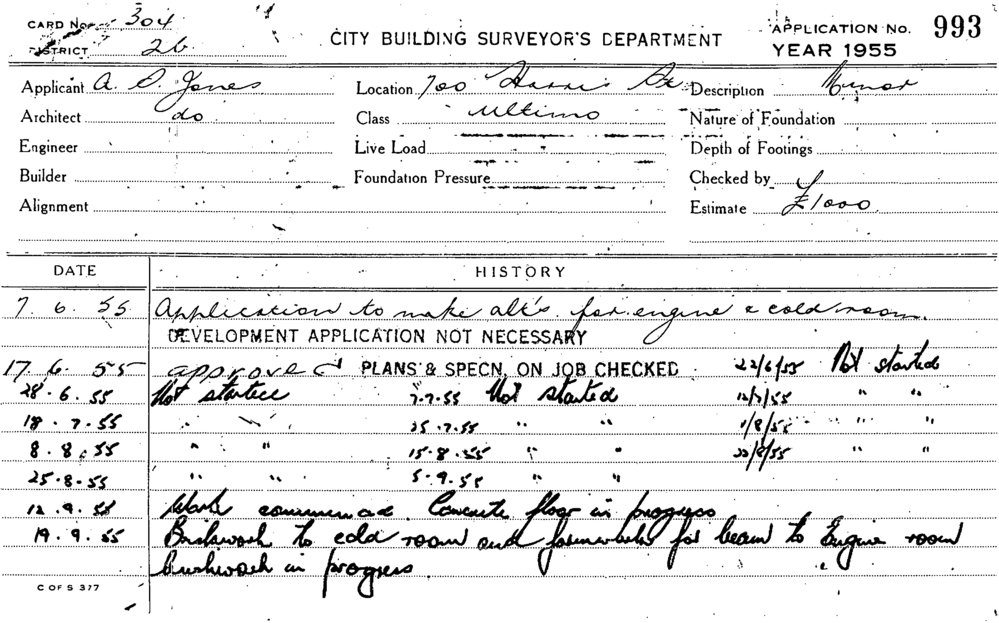 CARD No. 304 APPLICATION No. 993
DISTRICT 26 CITY BUILDING SURVEYOR'S DEPARTMENT YEAR 1955
Applicant A. D. Jones Location 700 Harris St Description Minor
Architect do Class Ultimo Nature of Foundation
Engineer Live Load Depth of Footings
Builder Foundation Pressure Checked by
Alignment Estimate £1000
DATE HISTORY
7 6. 55 Application to make alt's. for engine & cold room.
DEVELOPMENT APPLICATION NOT NECESSARY
17. 6. 55 approved PLANS & SPECN, ON JOB CHECKED 22/6/55 Not started
28.6.55 Not started 7.7.55 Not started 12/7/55 " "
18.7.55 " " 25.7.55 " " 1/8/55 " "
8.8.55 " " 15.8.55 " " 22/8/55 " "
25.8.55 " " 5.9.55 " "
12.9.55 Work commenced. Concrete floor in progress
19.9.55 Brickwork to cold room and formwork for beam to Engine room
brickwork in progress
C OF S 377